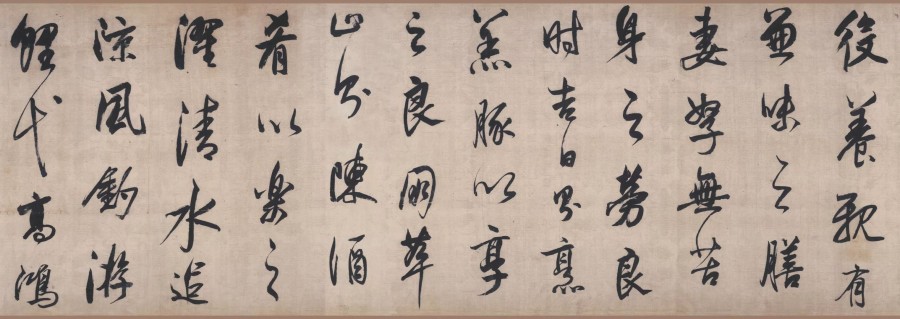 役養親有
兼味之膳
妻孥無苦
身之勞良
時吉日則烹
羔豚以享
之良朋萃
止則陳酒
肴以樂之
濯清水追
涼風釣游
鯉弋高鴻